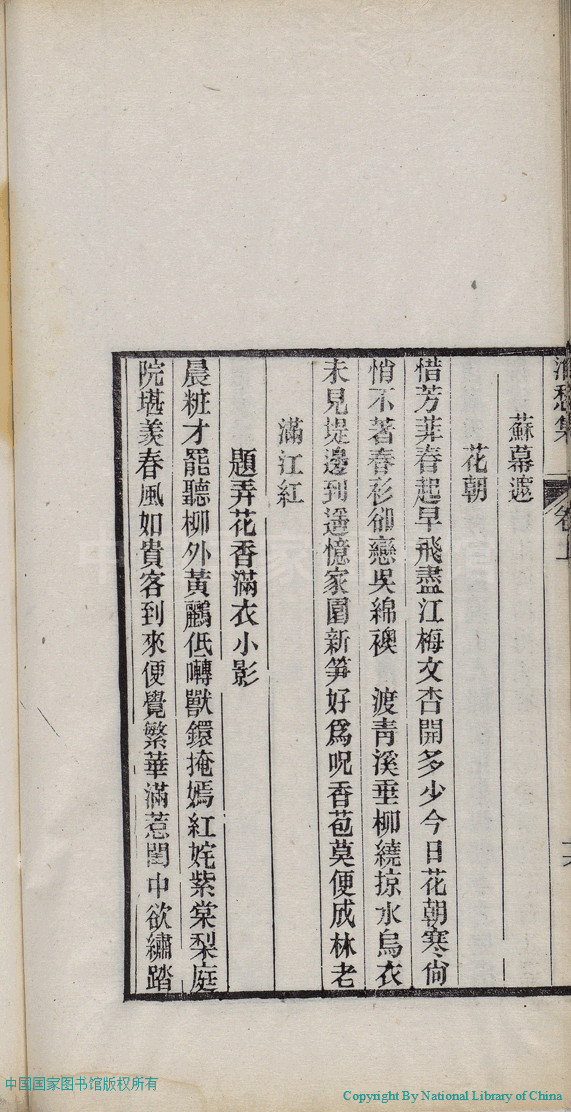 蘇幕遮
花朝
惜芳菲春起早飛盡江梅文杏開多少今日花朝寒尙
悄不著春衫卻戀吳綿襖　渡靑溪垂柳繞掠水烏衣
未見堤邊到遥憶家園新笋好爲呪香苞莫便成林老
滿江紅
題弄花香滿衣小影
晨粧才罷聽柳外黃鸝低囀獸鐶掩嫣紅姹紫棠梨庭
院堪羨春風如貴客到來便覺繁華滿惹閨中欲繡踏
中国国家图书馆版权所有
Copyright By National Library of China